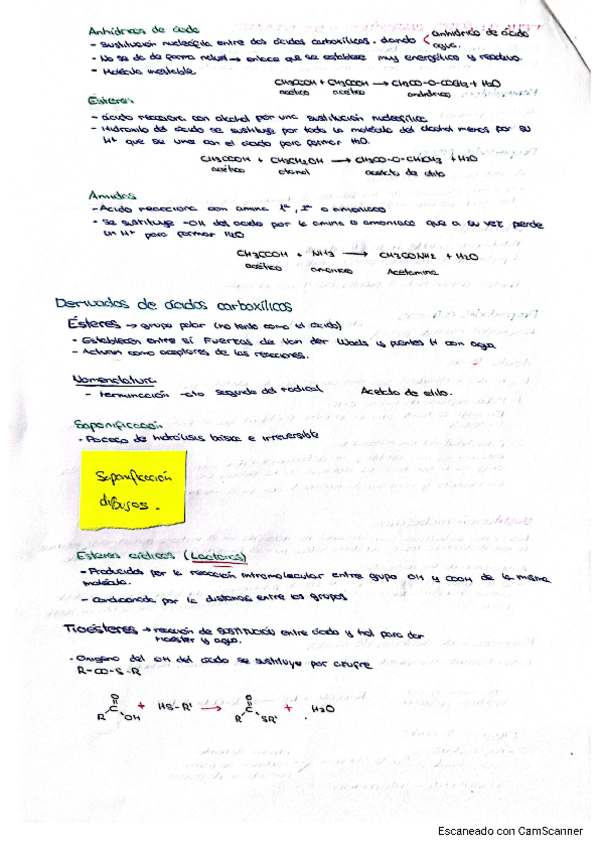 Anhídridos de ácido
- Sustitución nucleófila entre dos ácidos carboxílicos, dando < anhídrido de ácido
agua.
- No se da de forma natural → enlace que se establece muy energético y reactivo.
- Molécula inestable
CH3COOH + CH3COOH → CH3CO-O-COCH3 + H2O
acético acético anhídrido
Ésteres
- ácido reacciona con alcohol por una sustitución nucleofílica
- Hidroxilo del ácido se sustituye por toda la molécula del alcohol menos por su
H+ que se une con el ácido para formar H2O.
CH3COOH + CH3CH2OH → CH3CO-O-CH2CH3 + H2O
acético etanol acetato de etilo
Amidas
- Ácido reacciona con amina 1ª, 2ª o amoniaco
- Se sustituye -OH del ácido por la amina o amoniaco que a su vez pierde
un H+ para formar H2O
CH3COOH + NH3 → CH3CONH2 + H2O
acético amoniaco Acetamina
Derivados de ácidos carboxílicos
Ésteres → grupo polar (no tanto como el ácido)
- Establecen entre sí Fuerzas de Van der Waals y puentes H con agua
- Actúan como aceptores de las reacciones.
Nomenclatura
- terminación -ato seguido del radical Acetato de etilo.
Saponificación
- Proceso de hidrólisis básica e irreversible
Saponificación
dibujos.
Ésteres cíclicos (Lactonas)
- Producidos por la reacción intramolecular entre grupo OH y COOH de la misma
molécula.
- Condicionada por la distancia entre los grupos
Tioésteres → reacción de sustitución entre ácido y tiol para dar
tioéster y agua.
- Oxígeno del OH del ácido se sustituye por azufre
R-CO-S-R'
O O
R C OH + HS-R' → R C SR' + H2O
Escaneado con CamScanner